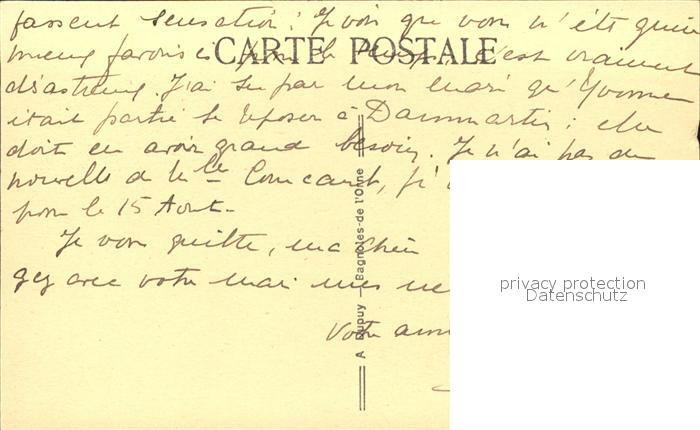 fassent sensation! Je vois que vous n'êtes guère
mieux favorisés pour le temps. c'est vraiment
CARTE POSTALE
désastreux. J'ai su par mon mari qu'Yvonne
était partie se reposer à Dammartin; elle
doit en avoir grand besoin. Je n'ai pas de
nouvelle de Mlle
pour le 15 Aout.
Je vous quitte, ma chère
gez avec votre mari mes
Votre
A Dupuy — Bagnoles-de l'Orne
privacy protection
Datenschutz